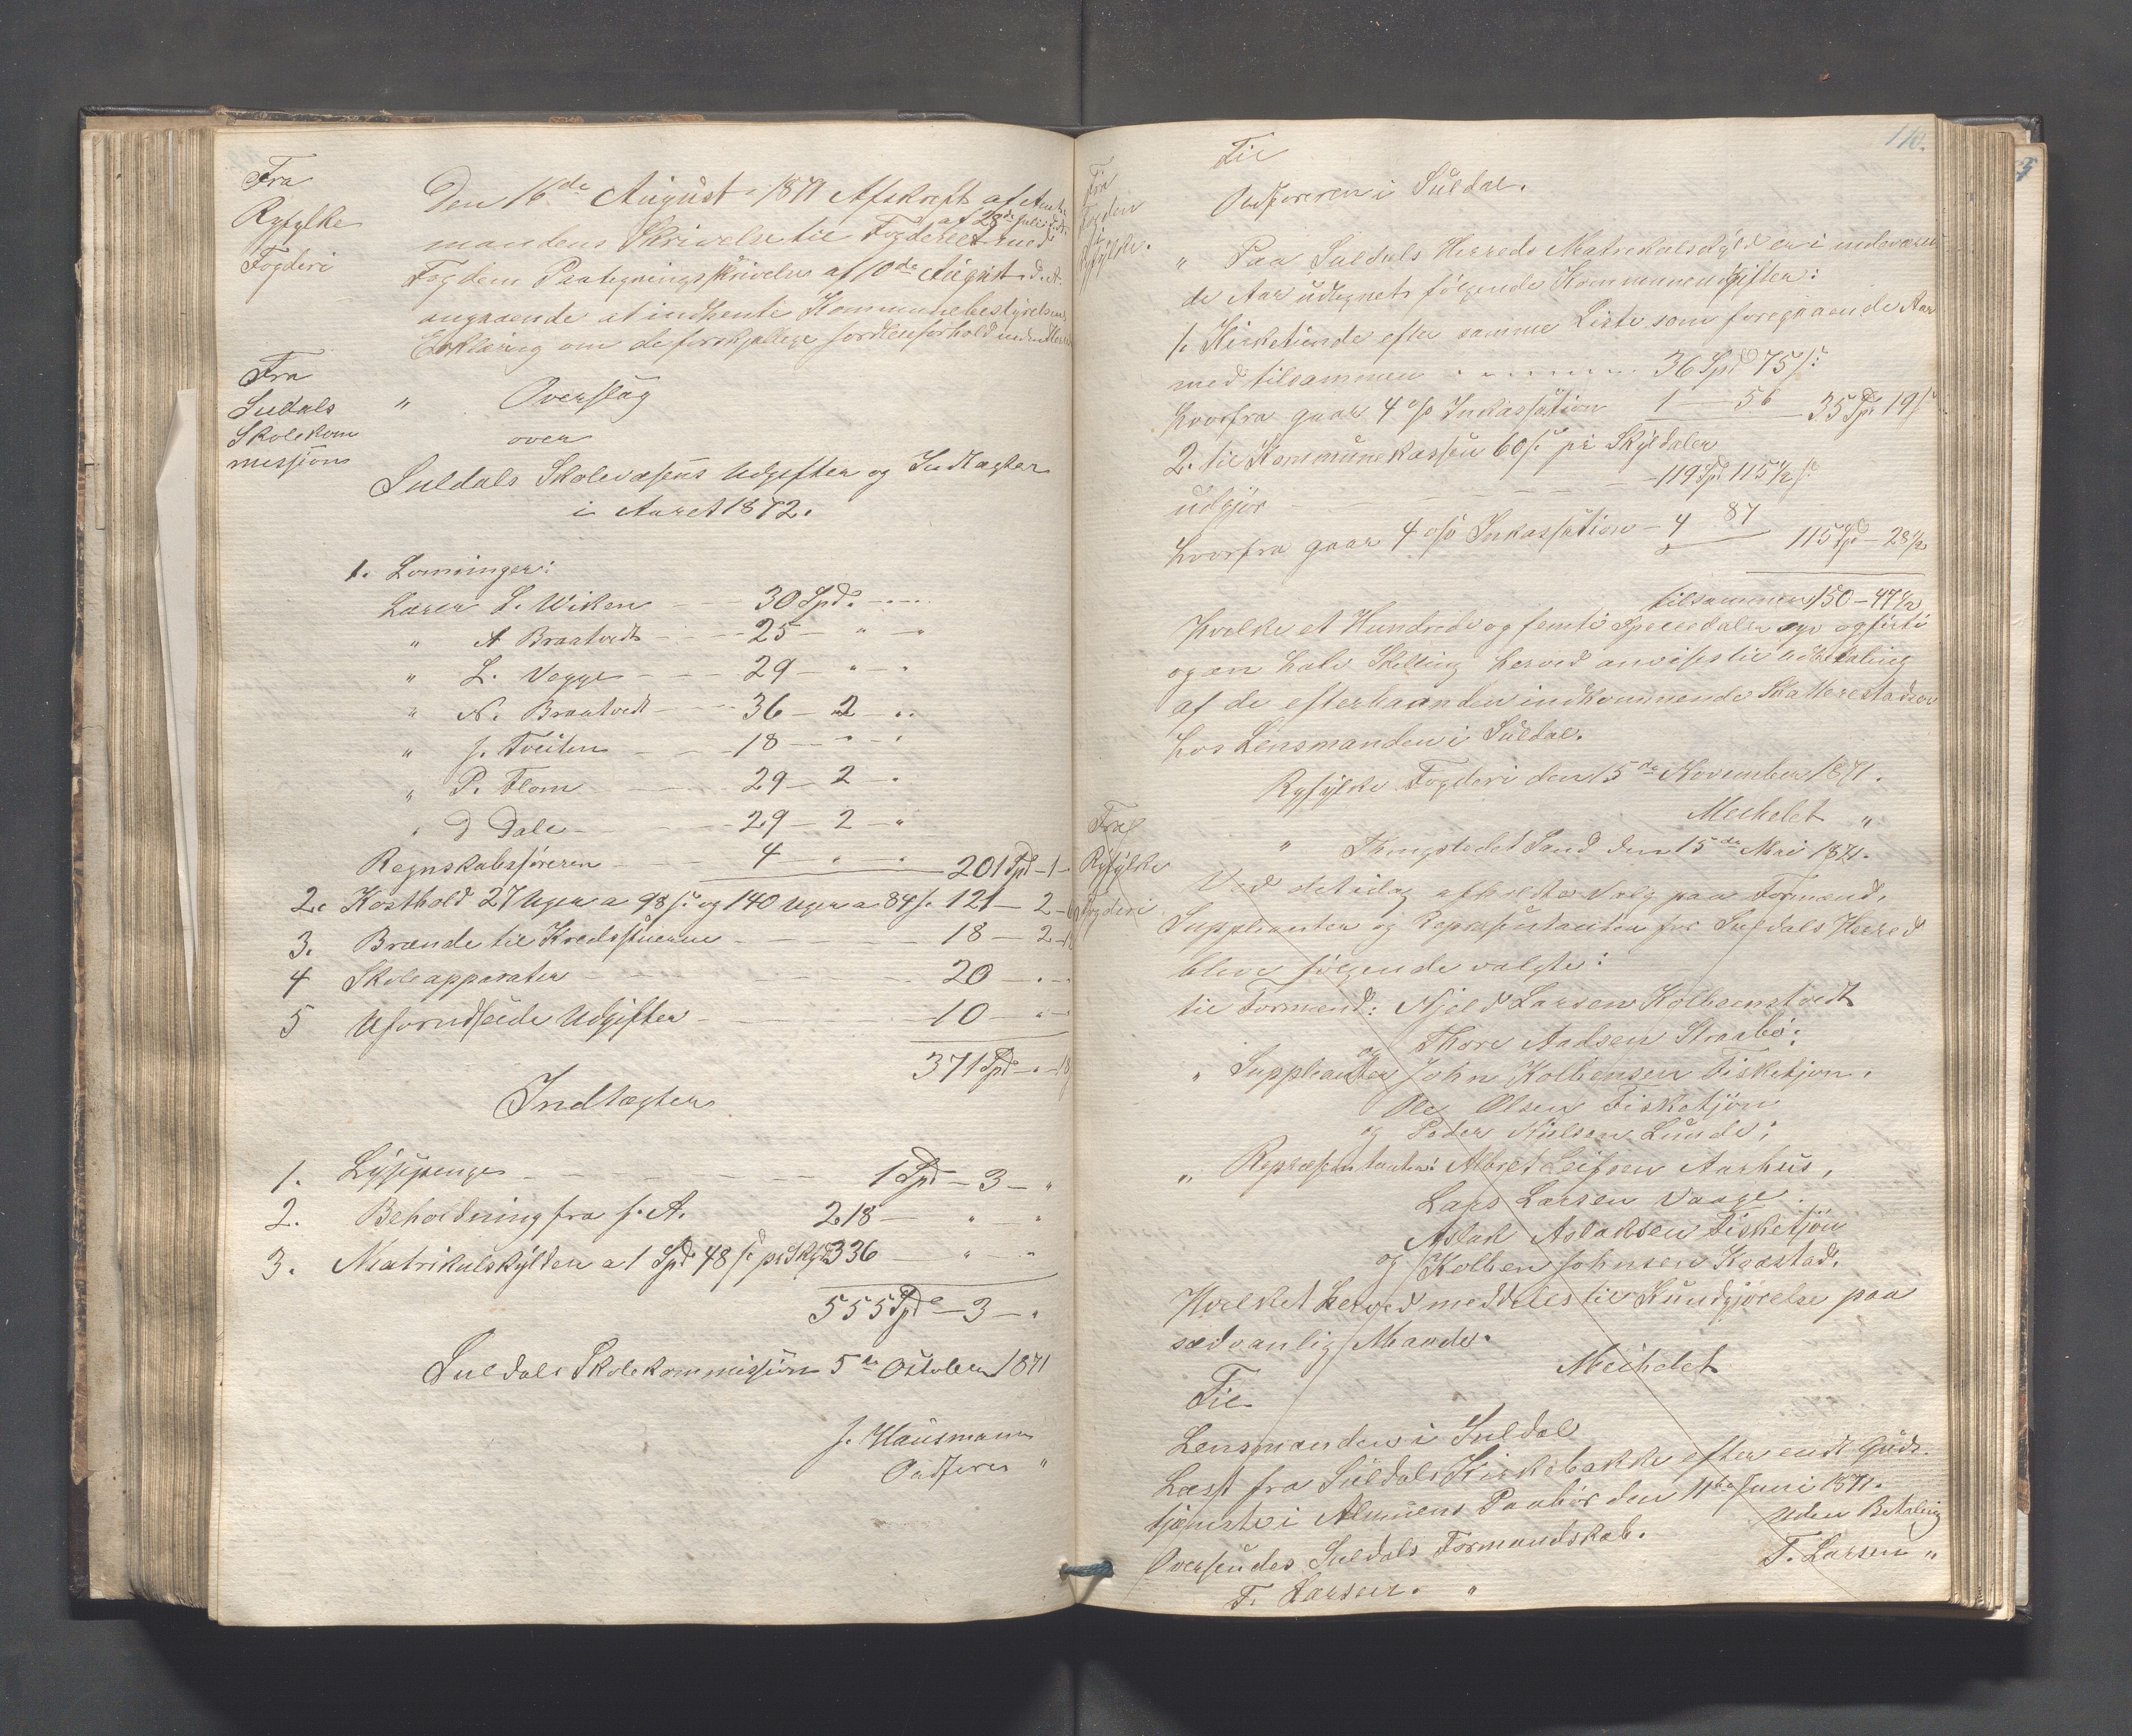 Fra
Ryfylke
Fogderi
Den 16de August 1871 Afskrift af Amt-
mandens Skrivelse til Fogderiet af 28de Juli d. A. med
Fogdens Paategningsskrivelse af 10de August d. A.
angaaende at indhente Kommunebestyrelsens
Erklæring om de forskjellige
Fra
Suldals
Skolekom
missjon
" Overslag
over
Suldals Skolevæsens Udgifter og Indtægter
i Aaret 1872.
1. Lønninger:
Lærer L. Wiken 30 Spd.
" A Braatvedt 25 - " - "
" L. Vegge 29 - " - "
" N. Braatvedt 36 - 2 - "
" J. Tveiten 18 - " - "
" P. Flom 29 - 2 - "
" D Dale 29 - 2 - "
Regnskabsføreren 4 " " 201 Spd - 1 -
2. Kosthold 27 Uger a 98 s. og 140 Uger a 84 s. 121 - 2 - 60
3. Brænde til Kredsstuerne 18 - 2 - 18
4 Skoleapparater 20 - " - "
5 Uforudseede Udgifter 10 - " - "
371 Spd - " - 18
Indtægter
1. Lysepenge 1 Spd - 3 - "
2. Beholdning fra f. A. 218 - " - "
3. Matrikulskylden a 1 Spd 48 s pr Skyld 336 - " - "
555 Spd - 3 - "
Suldals Skolekommissjon 5te October 1871
J. Hausmann
Ordfører "
110.
Fra
Fogden
i
Ryfylke.
Til
Ordføreren i Suldal.
" Paa Suldals Herreds Matrikulskyld er i indeværen
de Aar udlignet følgende Kommuneudgifter:
1. Kirketiende efter samme Liste som foregaaende Aar
med tilsammen 36 Spd 75 s:
hvorfra gaar 4 o/o Inkassation 1 - 56 - 35 Spd 19 s
2. til Kommunekassen 60 s. pr Skylddaler
udgjør 119 Spd 115 1/2 s
hvorfra gaar 4 o/o Inkassation - 4 87 115 Spd - 28 1/2
tilsammen 150 - 47 1/2
hvilke et Hundrede og femti Speciedaler syv og firti
og en halv Skilling herved anvises til Udbetaling
af de efterhaanden indkommende Skatterestancer
hos Lensmanden i Suldal.
Ryfylke Fogderi den 15de November 1871.
Meihdet "
Fra
Ryfylke
Fogderi
" Thingstedet Sand den 15de Mai 1871.
Ved det idag afholdte Valg paa Formænd,
Suppleanter og Repræsentanter for Suldals Herred
bleve følgende valgte:
til Formænd: Njeld Larsen Kolbenstvedt
og Thore Aadsen Straabø;
" Suppleanter John Kolbensen Fisketjøn.
Ole Olsen Fisketjøn
og Peder Nielsen Lunde;
" Repræsentanter: Albret Leifsen Aarhus,
Lars Larsen Vaage
Aslak Aslaksen Fisketjøn
og Kolben Johnsen Kvæstad.
Hvilket herved meddeles til Kundgjørelse paa
sædvanlig Maade.
Meihdet
Til
Lensmanden i Suldal
Læst fra Suldals Kirkebakke efter endt Guds-
tjeneste i Almuens Paahør den 11te Juni 1871.
Uden Betaling
Oversendes Suldals Formandskab.
T. Larsen "
T. Larsen. "